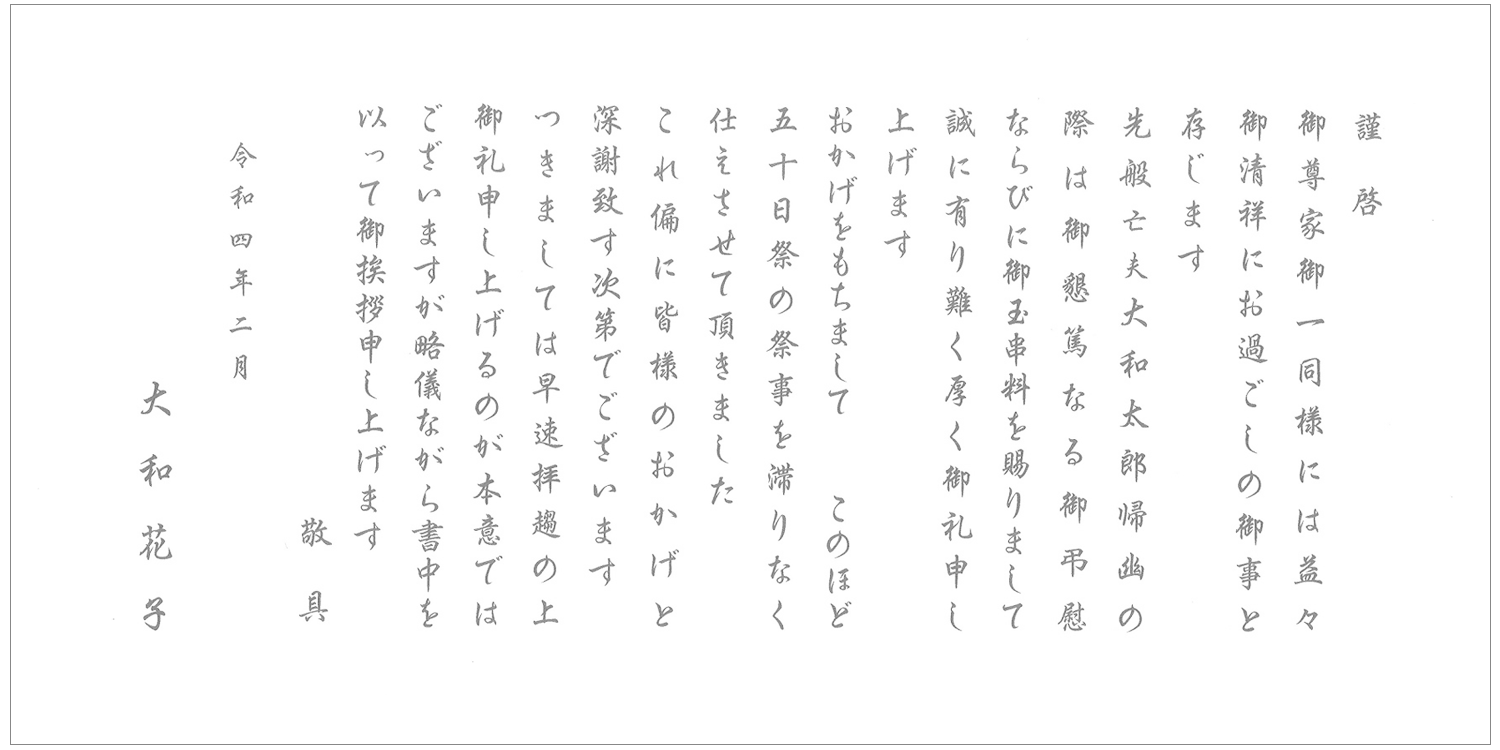 謹啓
御尊家御一同様には益々
御清祥にお過ごしの御事と
存じます
先般亡夫大和太郎帰幽の
際は御懇篤なる御弔慰
ならびに御玉串料を賜りまして
誠に有り難く厚く御礼申し
上げます
おかげをもちまして　このほど
五十日祭の祭事を滞りなく
仕えさせて頂きました
これ偏に皆様のおかげと
深謝致す次第でございます
つきましては早速拝趨の上
御礼申し上げるのが本意では
ございますが略儀ながら書中を
以って御挨拶申し上げます
敬具
令和四年二月
大和花子